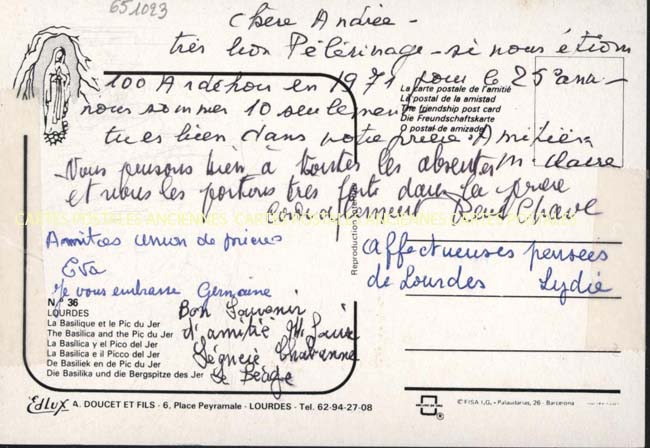 651023
Chère Andrée -
très bon Pélérinage - si nous étions
100 Ardéchois en 1971 pour le 25e anni -
nous sommes 10 seulement
tu es bien dans notre prière. Amitiés
M. Claire
La carte postale de l'amitié
La postal de la amistad
The friendship post card
Die Freundschaftskarte
O postal de amizade
Nous pensons bien à toutes les absentes
et nous les portons très fort dans la prière
cordialement
CARTES POSTALES ANCIENNES CARTES POSTALES ANCIENNES CARTES POSTALES
Amitiés union de prières
Eva
Je vous embrasse Germaine
Affectueuses pensées
de Lourdes Lydie
Bon Souvenir
d'amitié M. Louise
Chabanne
Le Béage
Reproduction
N° 36
LOURDES
La Basilique et le Pic du Jer
The Basilica and the Pic du Jer
La Basílica y el Pico del Jer
La Basilica e il Picco del Jer
De Basiliek en de Pic du Jer
Die Basilika und die Bergspitze des Jer
Edlux A. DOUCET ET FILS - 6, Place Peyramale - LOURDES - Tel. 62-94-27-08
© FISA I.G. - Palaudarias, 26 - Barcelona